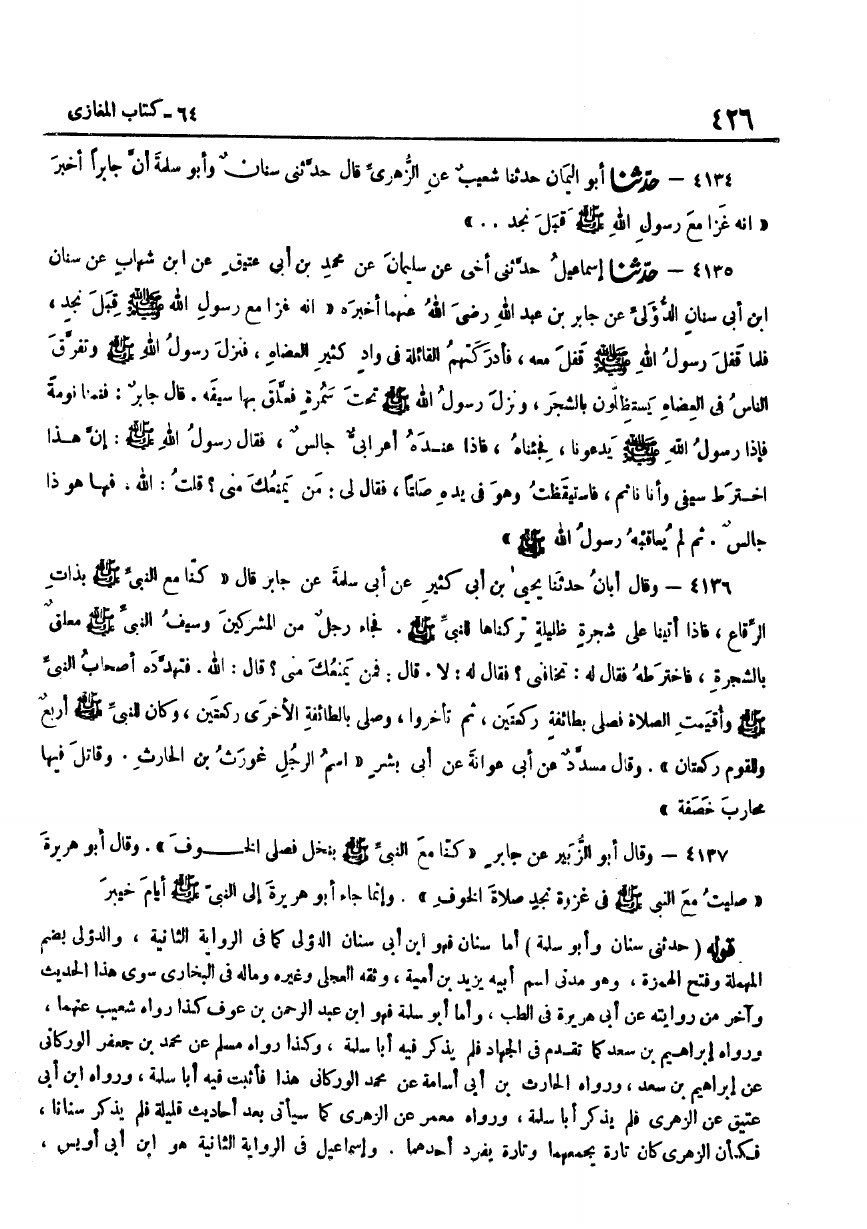 ٤٢٦ ٦٤ - كتاب المغازى
٤١٣٤ - حدّثنا أبو اليمان حدثنا شعيبٌ عنِ الزُّهرىِّ قال حدَّثنى سنانٌ وأبو سلمةَ أنَّ جابراً أخبرَ
« انه غَزا معَ رسولِ اللهِ ﷺ قِبَلَ نجد . . »
٤١٣٥ - حدّثنا إسماعيلُ حدَّثنى أخى عن سليمانَ عن محمدِ بن أبى عتيقٍ عن ابن شهابٍ عن سنان
ابن أبى سنانٍ الدُّؤَلىِّ عن جابر بن عبد اللهِ رضىَ اللهُ عنهما أخبرَه « انه غزا مع رسولِ الله ﷺ قِبَلَ نجدٍ ،
فلما قَفلَ رسولُ اللهِ ﷺ قَفلَ معه ، فأدرَكَتهمُ القائلة فى وادٍ كثيرِ العضاهِ ، فنزلَ رسولُ اللهِ ﷺ وتفرَّقَ
الناسُ فى العِضاهِ يَستظِلّون بالشجَر ، ونزلَ رسولُ الله ﷺ تحتَ سَمُرةٍ فعلَّقَ بها سيفَه . قال جابرٌ : فنمنا نومةً
فإذا رسولُ اللهِ ﷺ يَدعونا ، فجئناهُ ، فاذا عندَهُ أعرابىٌّ جالسٌ ، فقال رسولُ اللهِ ﷺ : إنَّ هذا
اخترَط سيفى وأنا نائم ، فاستيقَظتُ وهوَ فى يدهِ صَلتاً ، فقال لى : مَن يَمنعُكَ منى ؟ قلتُ : الله . فها هو ذا
جالسٌ . ثم لم يُعاقبْهُ رسولُ الله ﷺ »
٤١٣٦ - وقال أبانُ حدثَنا يحيىٰ بن أبى كثيرٍ عن أبى سلمةَ عن جابر قال « كنّا مع النبىِّ ﷺ بذاتِ
الرِّقاع ، فاذا أتينا على شجرةٍ ظليلةٍ تركناها للنبىِّ ﷺ . فجاء رجلٌ من المشركينَ وسيفُ النبىِّ ﷺ معلقٌ
بالشجرةِ ، فاخترَطهُ فقال له : تخافنى ؟ فقال له : لا . قال : فمن يَمنعُكَ منى ؟ قال : الله . فتهدَّدَه أصحابُ النبىِّ
ﷺ وأُقيمَتِ الصلاة فصلى بطائفةٍ ركعتَين ، ثم تأخروا ، وصلى بالطائفةِ الأخرَى ركعتَين ، وكان للنبىِّ ﷺ أربعٌ
وللقوم ركعتان » . وقال مسدَّدٌ عن أبى عوانةَ عن أبى بشرٍ « اسمُ الرجُلِ غورَثُ بن الحارثِ . وقاتلَ فيها
محاربَ خَصَفة »
٤١٣٧ - وقال أبو الزُّبَير عن جابرٍ « كنّا معَ النبىِّ ﷺ بنخل فصلى الخوفَ » . وقال أبو هريرةَ
« صليتُ معَ النبى ﷺ فى غزوة نجدٍ صلاةَ الخوفِ » . وإنما جاء أبو هريرةَ إلى النبىّ ﷺ أيامَ خيبرَ
قوله ( حدثنى سنان وأبو سلمة ) أما سنان فهو ابن أبى سنان الدؤلى كما فى الرواية الثانية ، والدؤلى بضم
المهملة وفتح الهمزة ، وهو مدنى اسم أبيه يزيد بن أمية ، وثقه العجلى وغيره وماله فى البخارى سوى هذا الحديث
وآخر من روايته عن أبى هريرة فى الطب ، وأما أبو سلمة فهو ابن عبد الرحمن بن عوف كذا رواه شعيب عنهما ،
ورواه إبراهيم بن سعد كما تقدم فى الجهاد فلم يذكر فيه أبا سلمة ، وكذا رواه مسلم عن محمد بن جعفر الوركانى
عن إبراهيم بن سعد ، ورواه الحارث بن أبى أسامة عن محمد الوركانى هذا فأثبت فيه أبا سلمة ، ورواه ابن أبى
عتيق عن الزهرى فلم يذكر أبا سلمة ، ورواه معمر عن الزهرى كما سيأتى بعد أحاديث قليلة فلم يذكر سنانا ،
فكأن الزهرى كان تارة يجمعهما وتارة يفرد أحدهما . وإسماعيل فى الرواية الثانية هو ابن أبى أويس ،